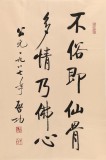 不俗即仙骨
多情乃佛心
公元一九八七年
启功